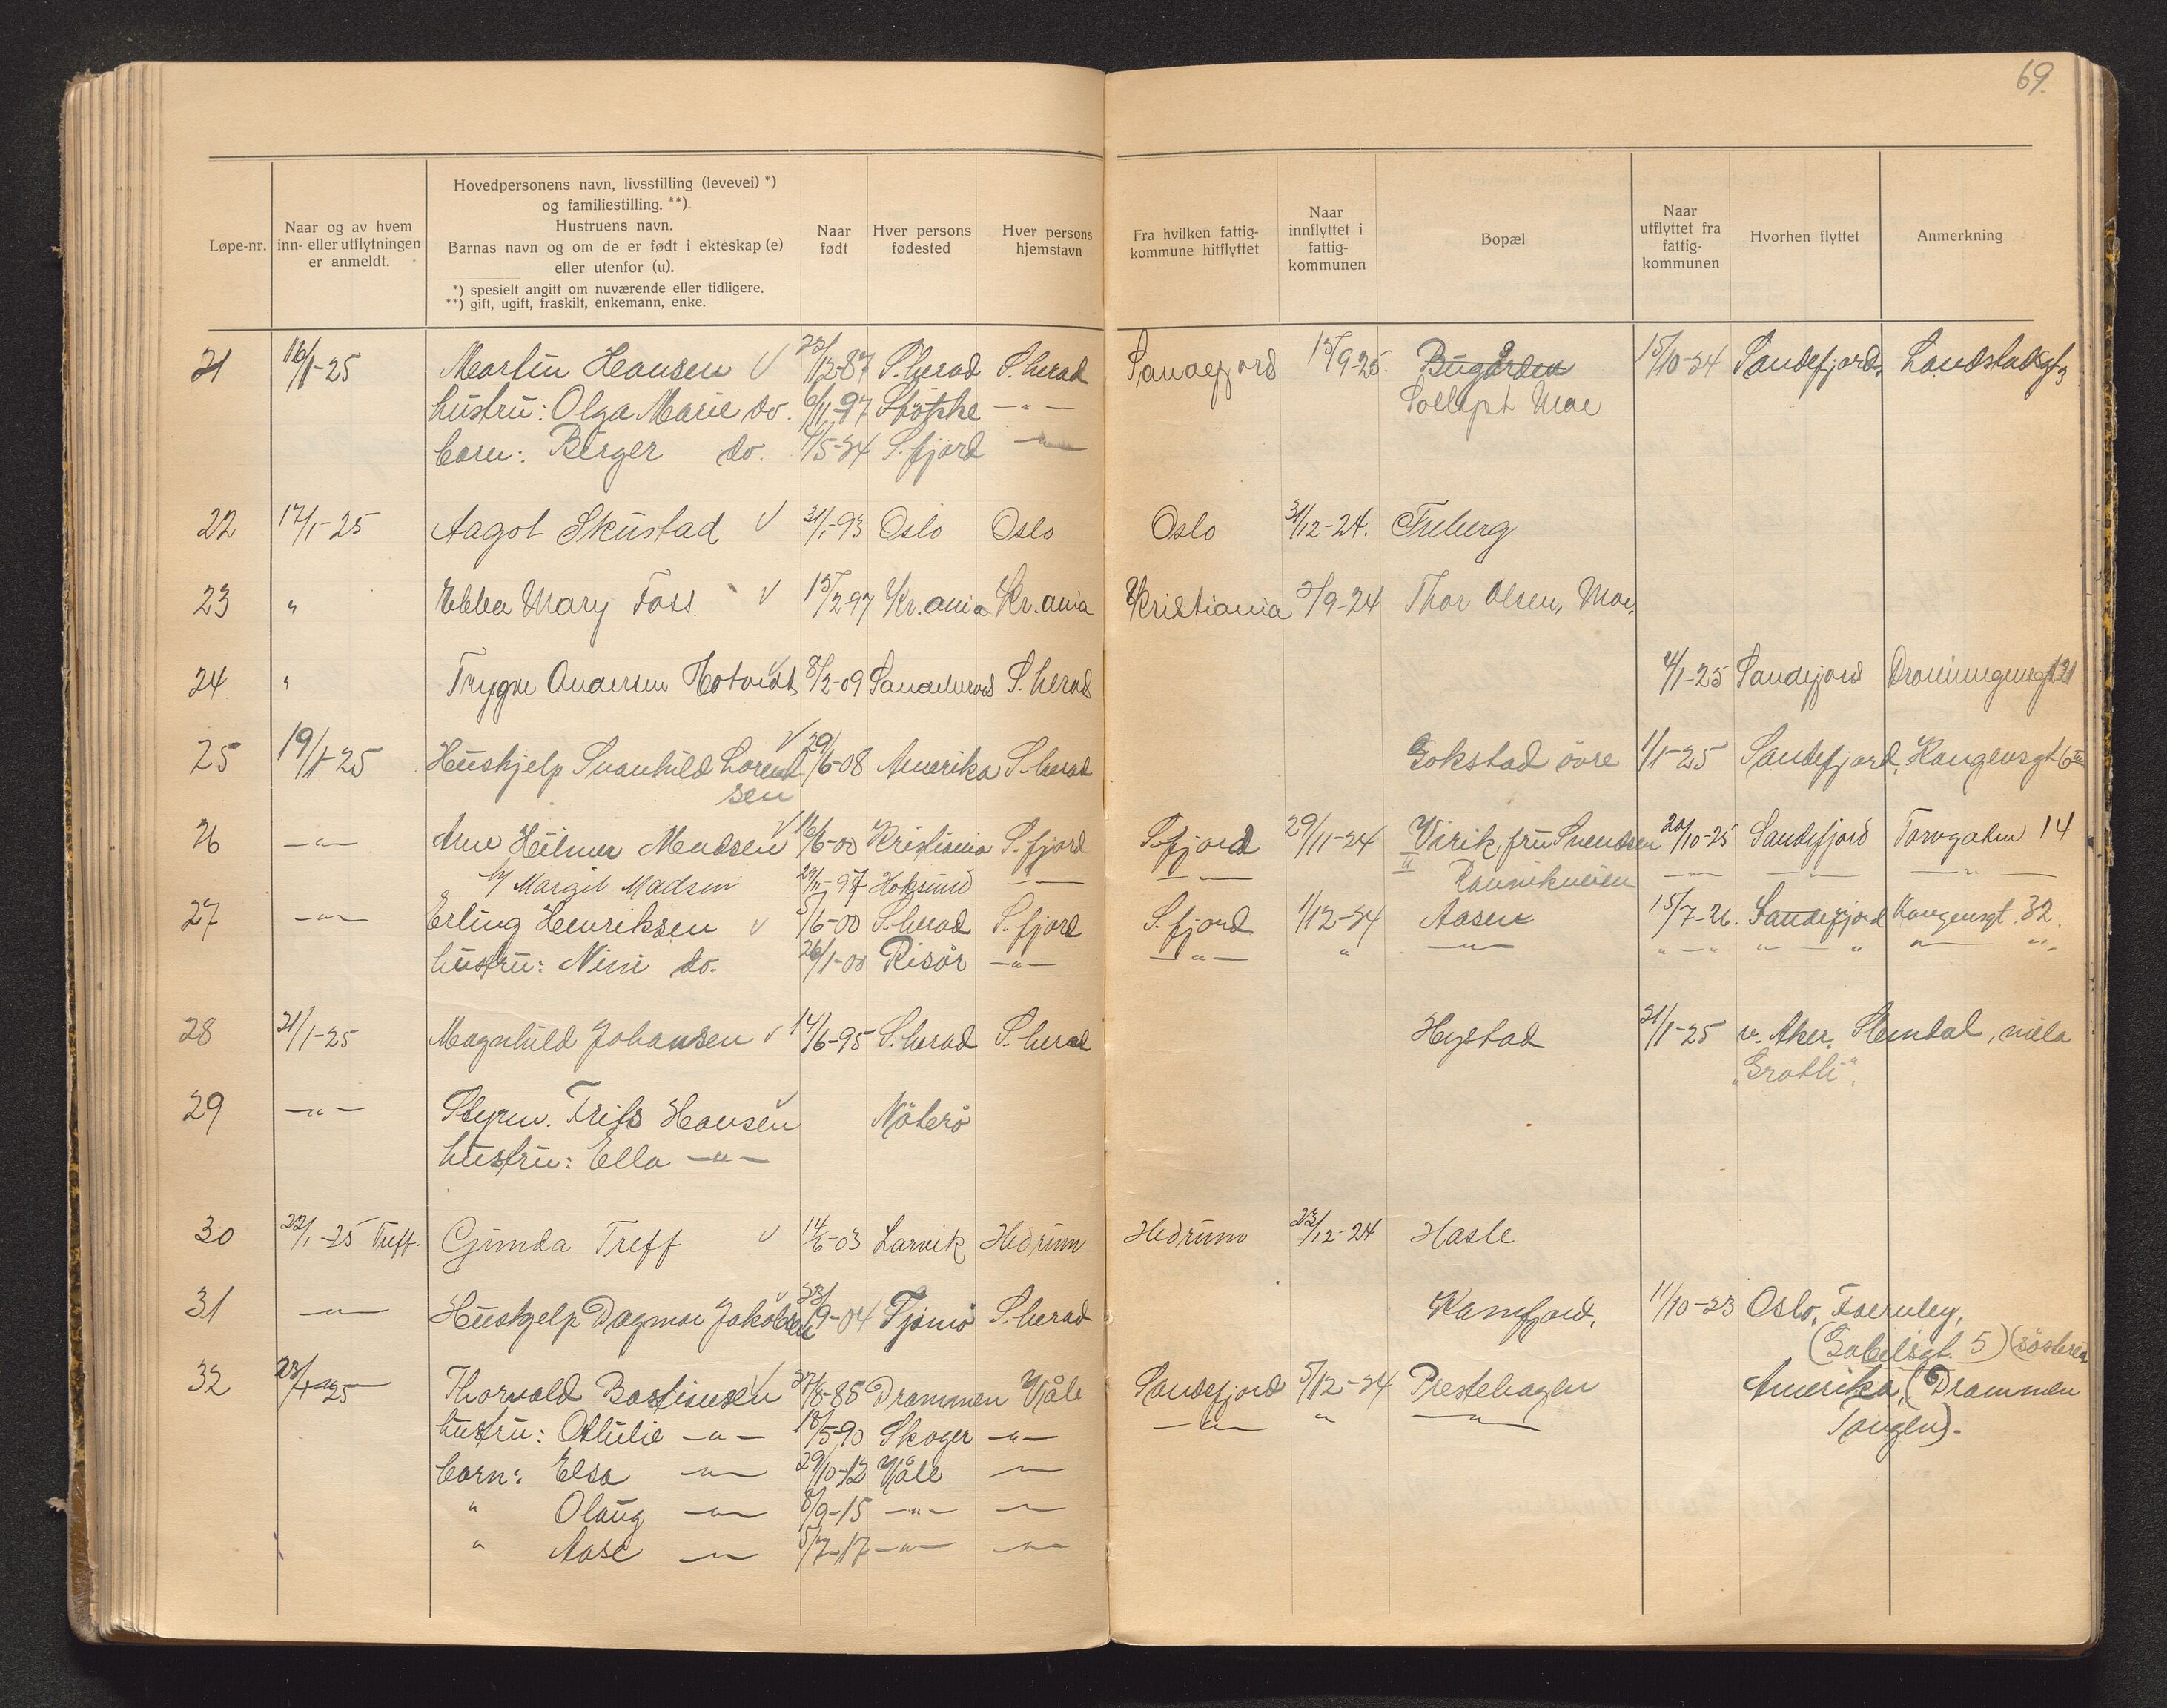 69.
Løpe-nr.
Naar og av hvem
inn- eller utflytningen
er anmeldt.
Hovedpersonens navn, livsstilling (levevei) *)
og familiestilling. **)
Hustruens navn.
Barnas navn og om de er født i ekteskap (e)
eller utenfor (u).
*) spesielt angitt om nuværende eller tidligere.
**) gift, ugift, fraskilt, enkemann, enke.
Naar
født
Hver persons
fødested
Hver persons
hjemstavn
Fra hvilken fattig-
kommune hitflyttet
Naar
innflyttet i
fattig-
kommunen
Bopæl
Naar
utflyttet fra
fattig-
kommunen
Hvorhen flyttet
Anmerkning
21 16/1-25 Martin Hansen √ /12-87 S.herad S.herad Sandefjord 15/9-25. Bugården 15/10-24 Sandefjord, Landstadsgt 3
hustru: Olga Marie do. 6/11-97 Stokke —"— Moe
barn: Birger do. /5-24 S.fjord —"—
22 17/1-25 Aagot Skustad √ 31/1-93 Oslo Oslo Oslo 31/12-24. Freberg
23 " Ebba Mary Foss. √ 15/2 97 Kr.ania Kr.ania Kristiania /9-24 Thor Olsen, Moe,
24 " Trygve Andersen Hotvedt √ 8/2-09 Sandeherred S.herad 4/1-25 Sandefjord Dronningensgt 21
25 19/1-25 Hushjelp Svanhild Lorent √ 29/6-08 Amerika S.herad Gokstad övre 1/1-25 Sandefjord, Kongensgt 6
sen
26 —"— Arne Hilmer Madsen √ 16/6-00 Kristiania S.fjord S.fjord 29/11-24 Virik, fru Svendsen 20/10-25 Sandefjord Torvgaten 14
h/ Margit Madsen 29/11-97 Hoksund —"— —"— " Ranvikveien —"— —"— —"—
27 —"— Erling Henriksen √ 5/6-00 S.herad S.fjord S.fjord 1/12-24 Aasen 15/7-26. Sandefjord Kongensgt. 32.
hustru: Nini do. 26/1-00 Risör —"— —"— " —"— "—" "—" "—"
28 21/1-25 Magnhild Johansen √ 14/6-95 S.herad S.herad Hystad 21/1-25 v. Aker, Slemdal, villa
"Grotli".
29 —"— Styrm. Frits Hansen √ Nöterö
hustru: Ella —"—
30 22/1-25 Treff. Gunda Treff √ 14/6-03 Larvik Hedrum Hedrum 23/12-24 Hasle
31 —"— Hushjelp Dagmar Jakobsen √ 23/9-04 Tjömö S.herad Kamfjord, 11/10-23 Oslo, Fornebo,
(Gabelsgt. 5) (søsteren
32 23/1-25 Thorvald Bastiansen √ 27/8-85 Drammen Våle Sandefjord 5/12-24 Prestehagen Amerika, (Drammen
hustru: Othilie —"— 18/5-90 Skoger —"— —"— " —"— Tangen).
barn: Elsa —"— 29/10-12 Våle —"—
" Olaug —"— 8/9-15 —"— —"—
" Aase —"— 5/7-17 —"— —"—